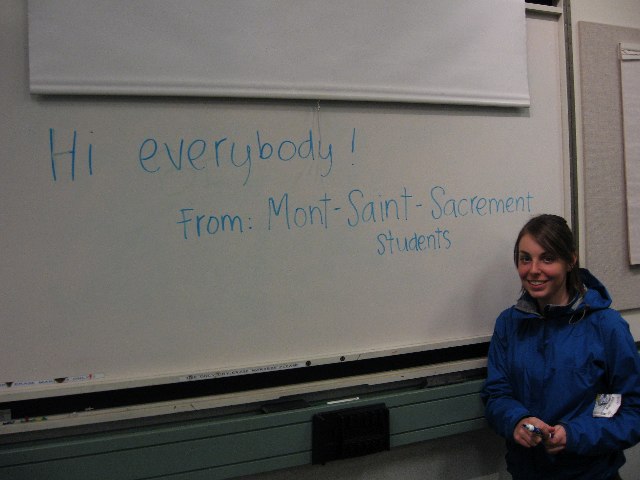 Hi everybody!
From: Mont-Saint-Sacrement
Students